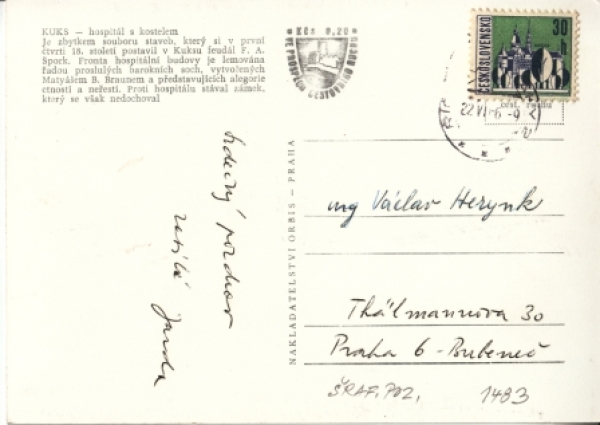 KUKS — hospitál s kostelem
Je zbytkem souboru staveb, který si v první
čtvrti 18. století postavil v Kuksu feudál F. A.
Špork. Fronta hospitální budovy je lemována
řadou proslulých barokních soch, vytvořených
Matyášem B. Braunem a představujících alegorie
ctností a neřestí. Proti hospitálu stával zámek,
který se však nedochoval
Kčs 0,20
VE PROSPĚCH CESTOVNÍHO
ČESKOSLOVENSKO
30 h
22 VI
srdečný pozdrav
zasílá Jarda
NAKLADATELSTVÍ ORBIS — PRAHA
ing Václav Herynk
Thálmannova 30
Praha 6 - Bubeneč
ŠRAF. 702,
1483